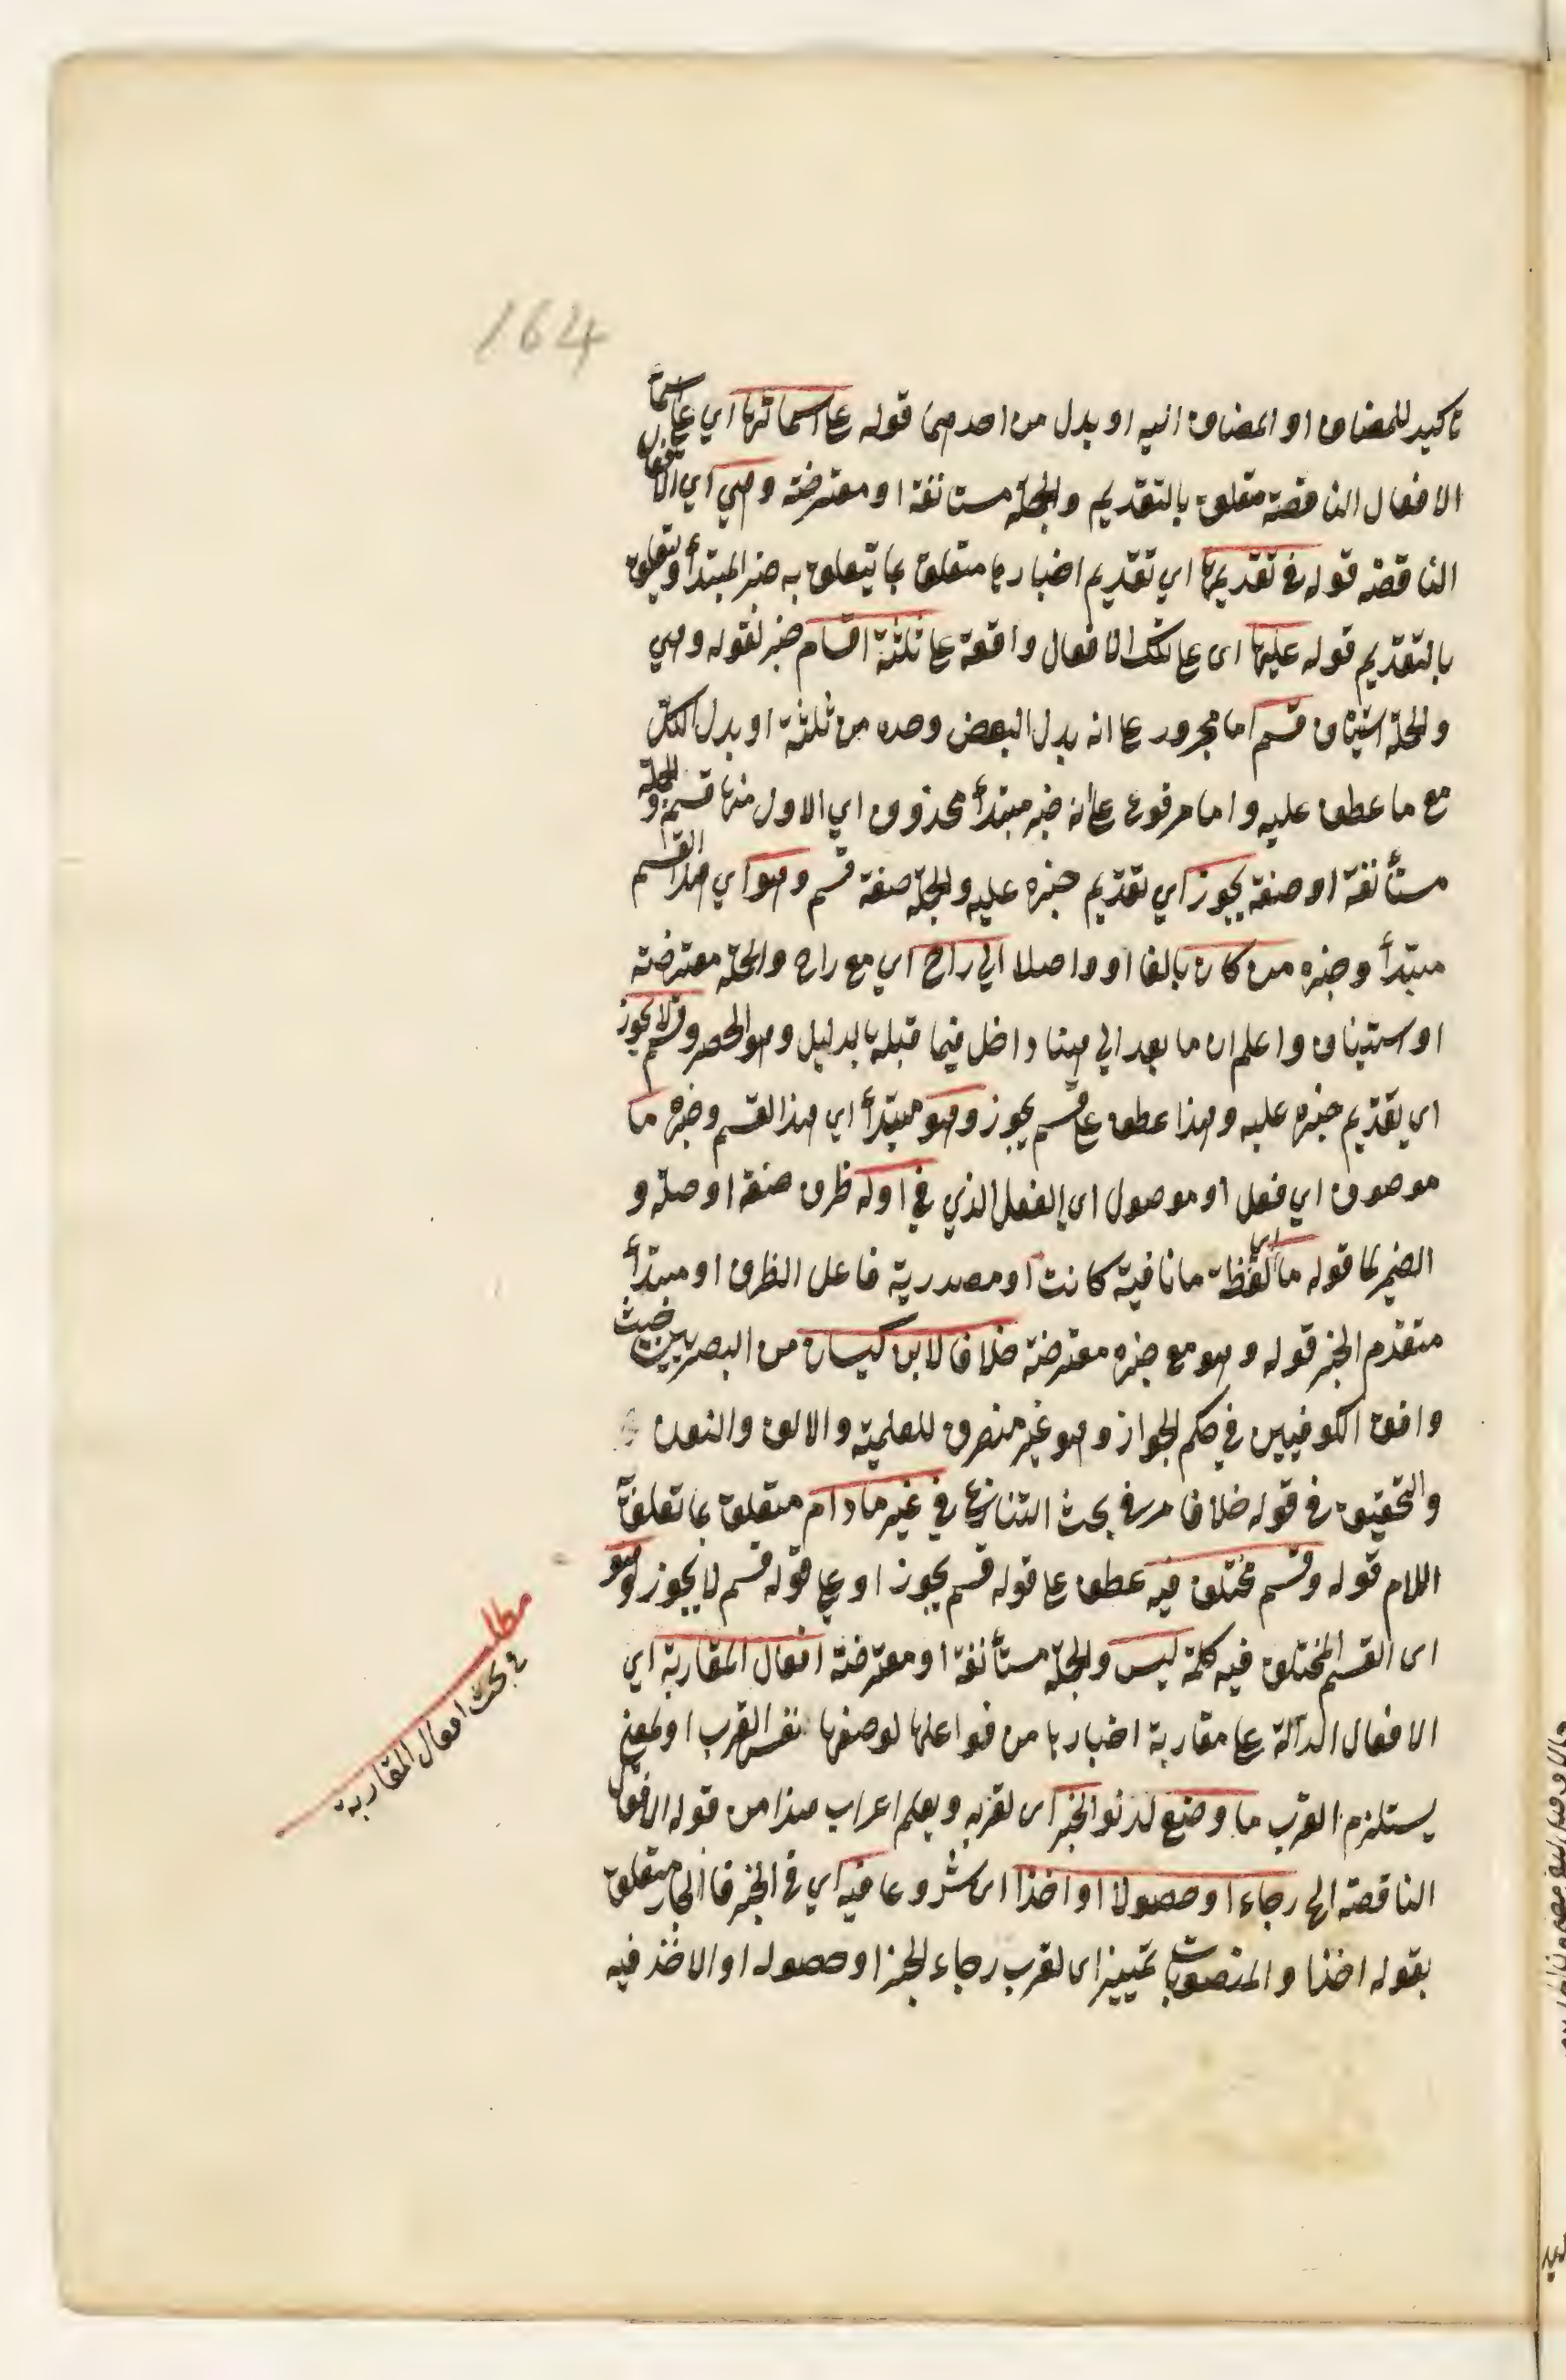 164
تأكيد للمضاف او المضاف اليه او بدل من احدهما قوله على اسمائها اي على اسماء
الافعال الناقصة متعلق بالتقديم والجملة مستانفة او معترضة وهي اي الافعال
الناقصة قوله في تقديمها اي تقديم اخبارها متعلق بما تيعلق به خبر المبتدأ ويتعلق
بالتقديم قوله عليها اى على تلك الافعال واقعة على ثلثة اقسام خبر لقوله وهي
والجملة استيناف قسم اما مجرور على انه بدل البعض وحده من ثلثة او بدل الكل
مع ما عطف عليه واما مرفوع على انه خبر مبتدأ محذوف اي الاول منها قسم والجملة
مستأنفة او صفة يجوز اي تقديم خبره عليه والجملة صفة قسم وهو اي هذا القسم
مبتدأ وخبره من كان بالغا او واصلا الي راح اي مع راح والجملة معترضة
او ستيناف واعلم ان ما بعد الي هنا داخل فيما قبله بالدليل وهو الحصر وقسم لا يجوز
اى تقديم خبره عليه وهذا عطف على قسم يجوز وهو مبتدأ اي هذا القسم وخبره ما
موصوف اي فعل او موصول اى الفعل الذي في اوله ظرف صفة او صلة و
الضمير لما قوله ما اي لفظة ما نافية كانت او مصدرية فاعل الظرف او مبتدأ
متقدم الخبر قوله وهو مع خبره معترضة خلافا لابن كيسان من البصريين حيث
وافق الكوفيين في حكم الجواز وهو غير منصرف للعلمية والالف والنون
والتحقيق في قوله خلافا مر في بحث التنازع في غير ما دام متعلق بما تعلق به
اللام قوله وقسم مختلف فيه عطف على قوله قسم يجوز او على قوله قسم لا يجوز وهو
اى القسم المختلف فيه كلمة ليس والجملة مستأنفة او معترضة افعال المقاربة اي
الافعال الدالة على مقاربة اخبارها من فواعلها لوصفها نفس القرب او لمعنى
يستلزم القرب ما وضع لدنو الخبر اى لقربه ويعلم اعراب هذا من قوله الافعال
الناقصة الخ رجاء او حصولا او اخذا اى شروعا فيه اي في الخبر فالجار متعلق
بقوله اخذا والمنصوبات تمييز اى لقرب رجاء الخبر او حصوله او الاخذ فيه
مطلب
في بحث افعال المقاربة